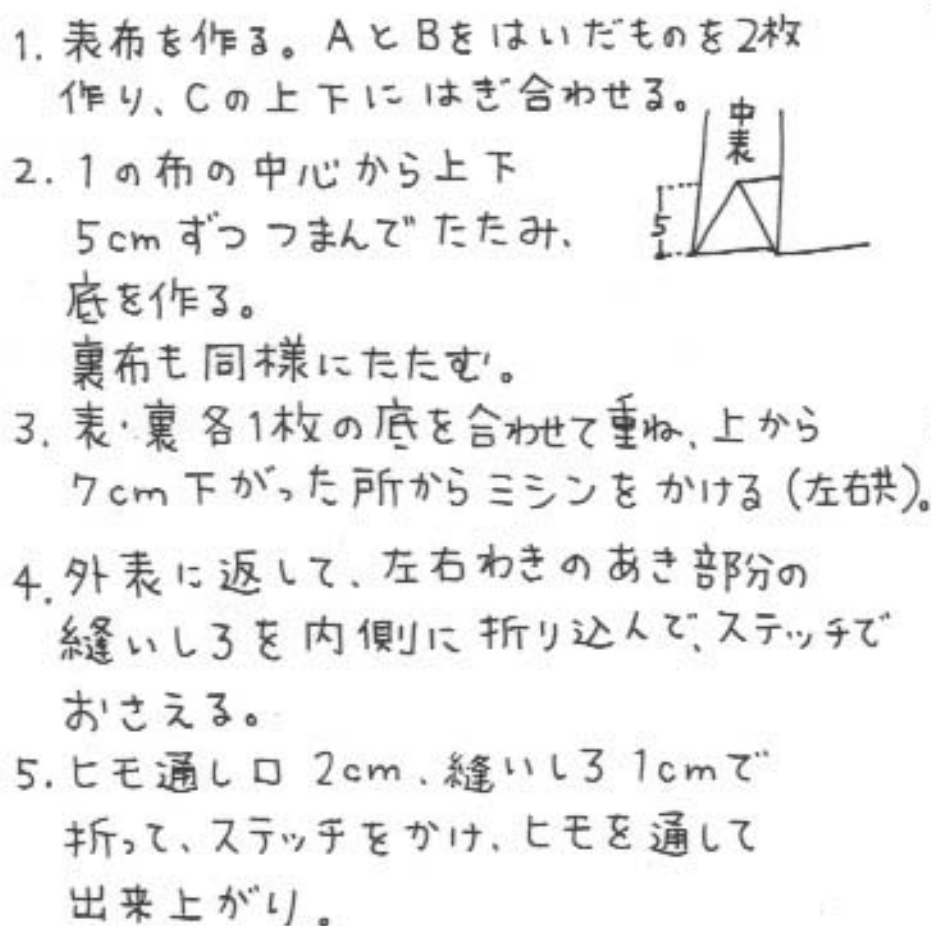 1. 表布を作る。AとBをはいだものを2枚
作り、Cの上下にはぎ合わせる。
中表
2. 1の布の中心から上下
5cmずつつまんでたたみ、
5
底を作る。
裏布も同様にたたむ。
3. 表・裏各1枚の底を合わせて重ね、上から
7cm下がった所からミシンをかける(左右共)。
4. 外表に返して、左右わきのあき部分の
縫いしろを内側に折り込んで、ステッチで
おさえる。
5. ヒモ通し口 2cm、縫いしろ 1cmで
折って、ステッチをかけ、ヒモを通して
出来上がり。